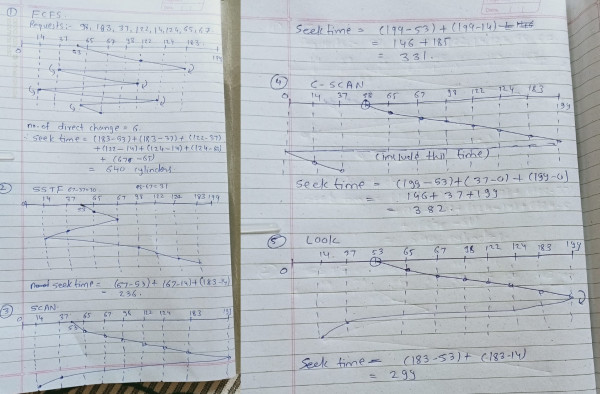 ① FCFS
Requests:- 98, 183, 37, 122, 14, 124, 65, 67
0 14 37 65 67 98 122 124 183 199
53
no. of direct change = 6
Seek time = (183-53)+(183-37)+(122-37)
+(122-14)+(124-14)+(124-65)
+ (67-65)
= 640 cylinders
2 SSTF
14 37 65 67 98 122 124 183 199
53
seek time = (67-53)+(67-14)+(183-14)
= 236.
③ SCAN
0 14 37 65 67 98 122 124 183 199
53
Seek time = (199-53)+(199-14)
= 146 + 185
= 331.
④ C-SCAN
0 14 37 53 65 67 98 122 124 183 199
(include this time)
Seek time = (199-53)+(37-0)+(199-0)
= 146+37+199
= 382.
⑤ LOOK
0 14 37 53 65 67 98 122 124 183 199
Seek time = (183-53)+(183-14)
= 299